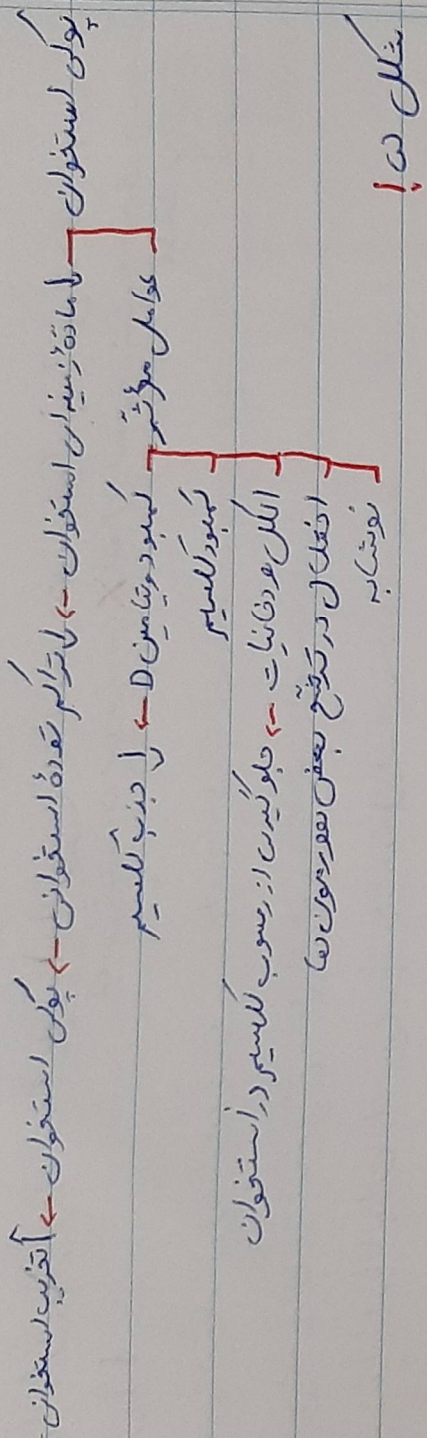 شکل ها!
پوکی استخوان
↓ مادهٔ زمینه‌ای استخوان -> ↓ تراکم تودهٔ استخوانی -> پوکی استخوان -> ↑ تخریب استخوان
عوامل مؤثر
کمبود ویتامین D -> ↓ جذب کلسیم
کمبود کلسیم
الکل و دخانیات -> جلوگیری از رسوب کلسیم در استخوان
اختلال در ترشح بعضی هورمون ها
نوشابه